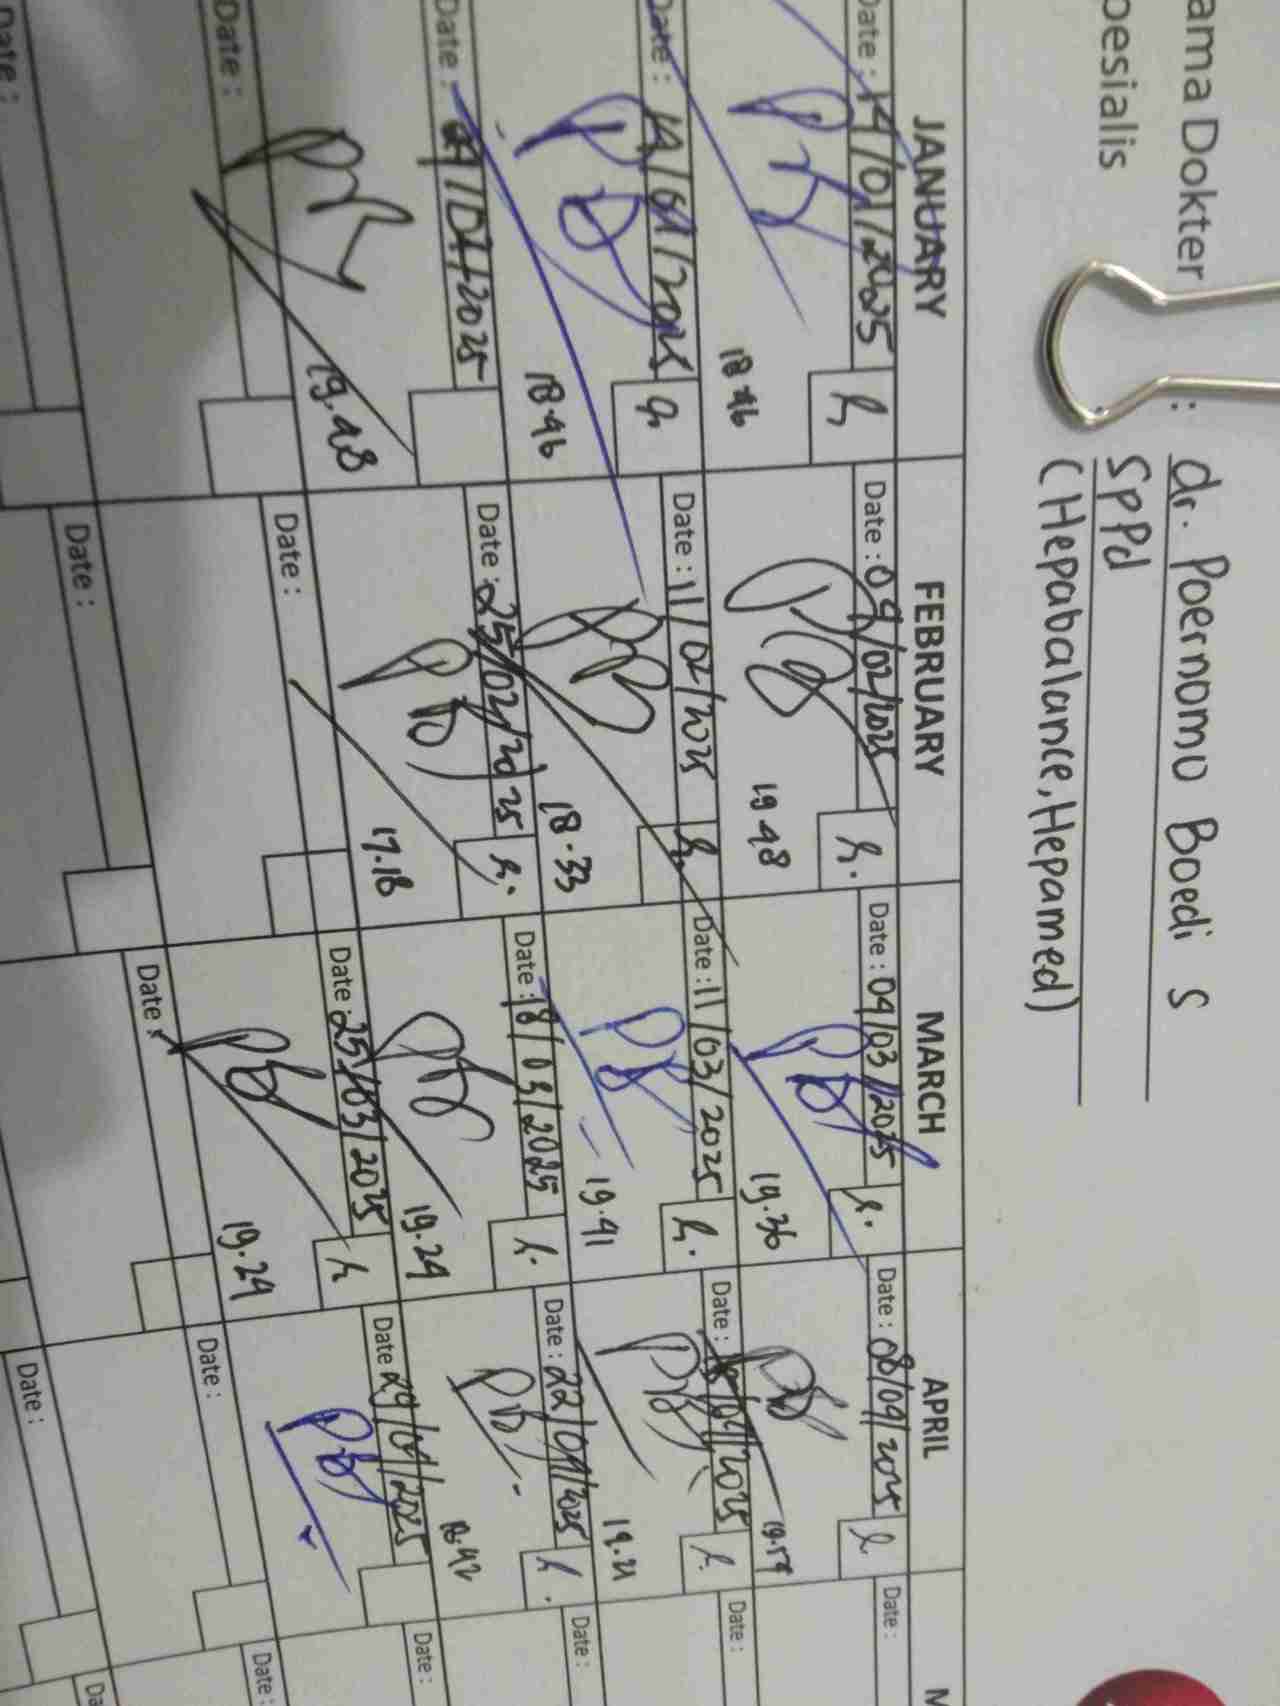 ama Dokter : dr. Poernomo Boedi S
pesialis SpPd
(Hepabalance, Hepamed)
JANUARY FEBRUARY MARCH APRIL M
Date : 14/01/2025 Date : 04/02/2025 Date : 04/03/2025 Date : 08/04/2025 Date :
18.46 19.48 19.36 19.54
Date : /01/2025 Date : 11/02/2025 Date : 11/03/2025 Date : /04/2025 Date :
18.46 18.33 19.41 19.21
Date : /01/2025 Date : 25/02/2025 Date : 18/03/2025 Date : 22/04/2025 Date :
19.48 17.18 19.24 18.42
Date : Date : Date : 25/03/2025 Date : 29/04/2025 Date :
19.24
Date : Date : Date : Date : Date :
Date :
Da